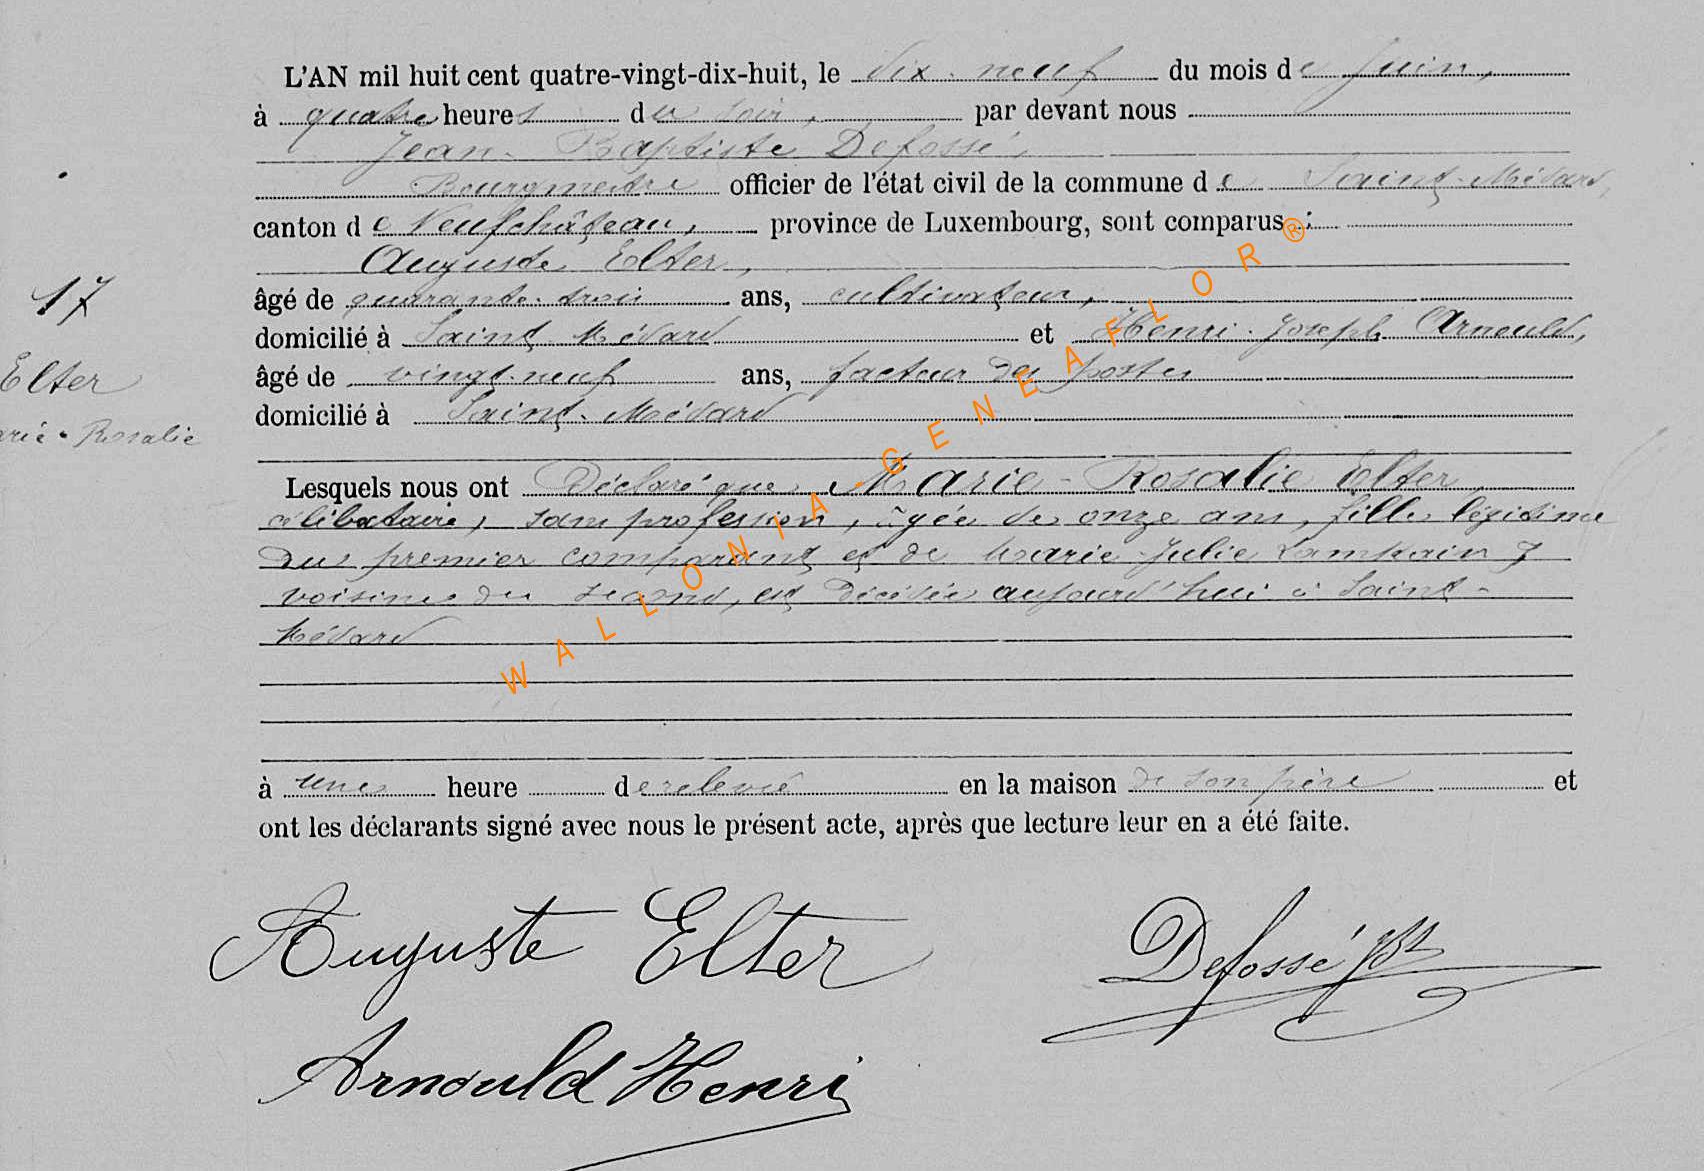 L'AN mil huit cent quatre-vingt-dix-huit, le dix-neuf du mois de Juin,
à quatre heures du soir, par devant nous
Jean-Baptiste Defossé,
Bourgmestre officier de l'état civil de la commune de Saint-Médard,
canton de Neufchâteau, province de Luxembourg, sont comparus :
Auguste Elter,
17
âgé de quarante-trois ans, cultivateur,
domicilié à Saint-Médard et Henri-Joseph Arnould,
Elter
âgé de vingt-neuf ans, facteur des postes
domicilié à Saint-Médard
arie-Rosalie
Lesquels nous ont Déclaré que Marie-Rosalie Elter,
célibataire, sans profession, âgée de onze ans, fille légitime
du premier comparant et de Marie-Julie
voisine du second, est décédée aujourd'hui à Saint-
Médard
à une heure de relevée en la maison de son père et
ont les déclarants signé avec nous le présent acte, après que lecture leur en a été faite.
Auguste Elter
Defossé JBt
Arnould Henri
WALLONIA-GENEAFLOR®